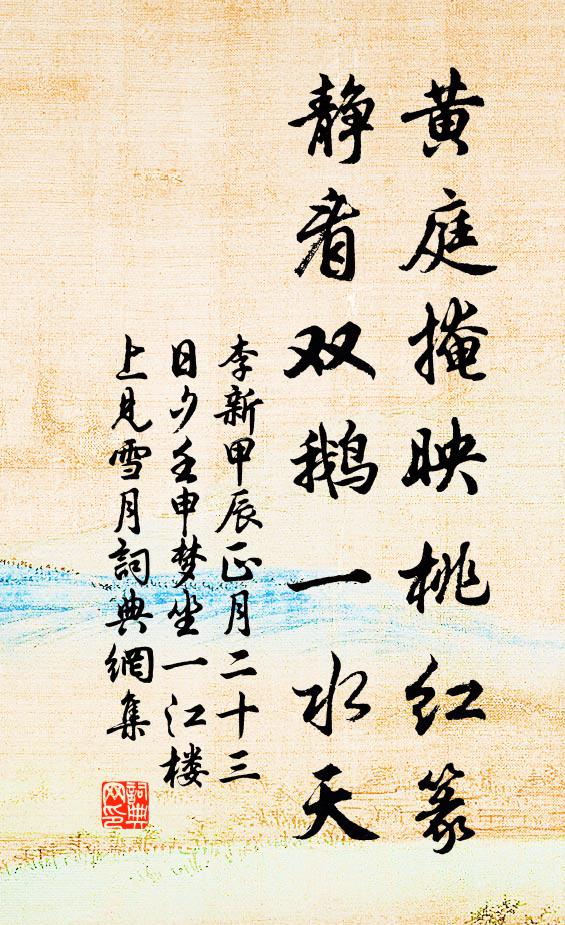 黄庭掩映桃红篆
静看双鹅一水天
李新甲辰正月二十三
日夕壬申梦坐一江楼
上见雪月詞典網集
詞典
网印